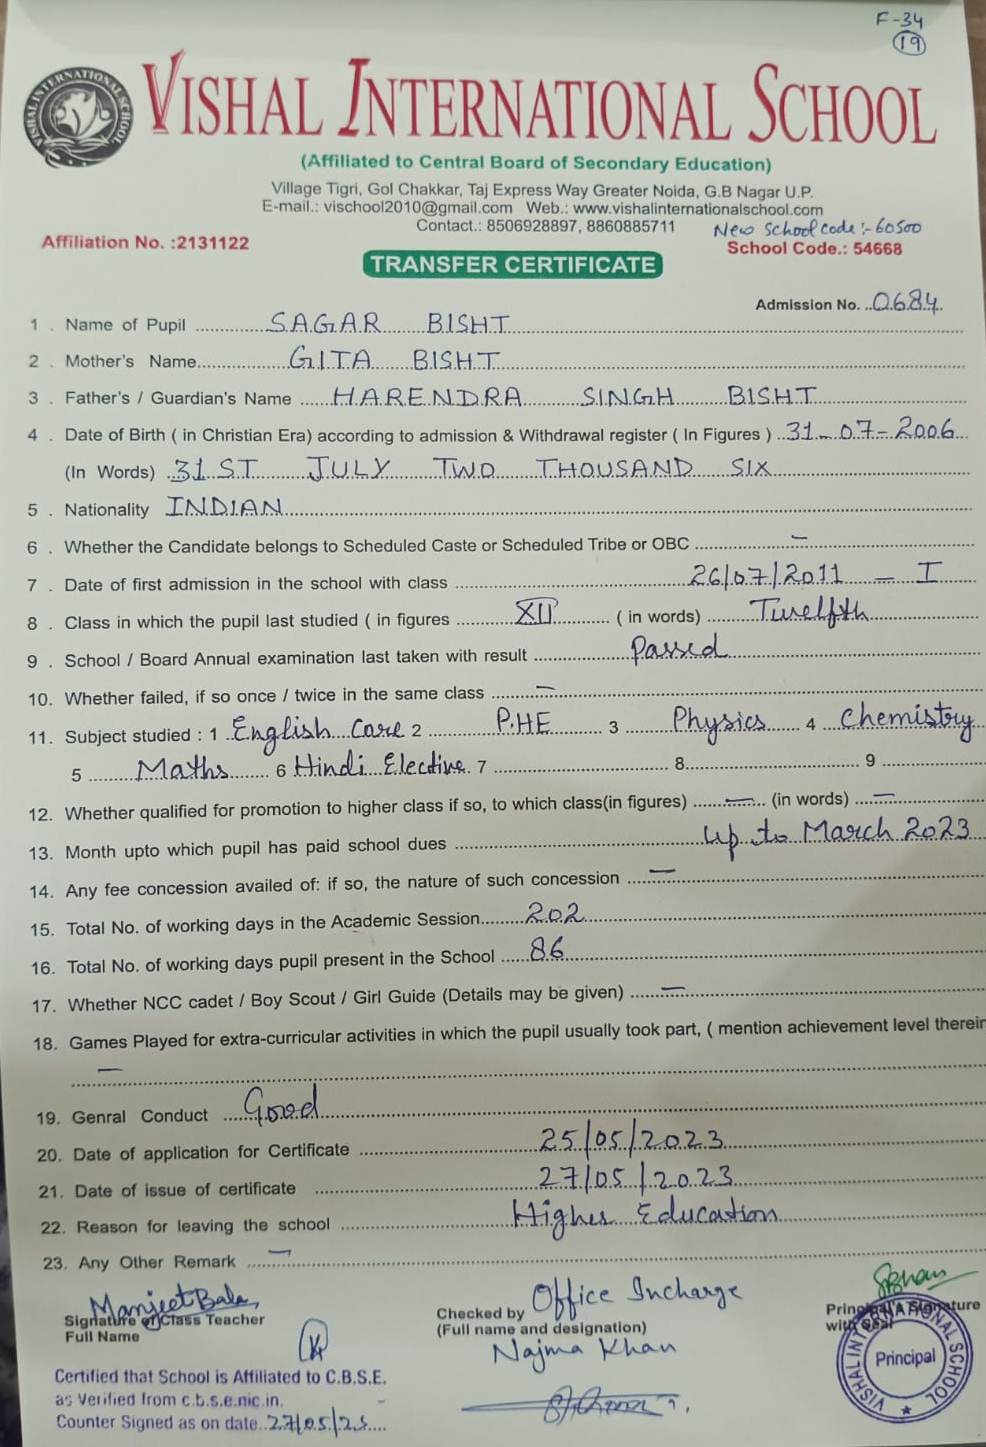 F-34
19
VISHAL INTERNATIONAL SCHOOL
VISHAL INTERNATIONAL SCHOOL
(Affiliated to Central Board of Secondary Education)
Village Tigri, Gol Chakkar, Taj Express Way Greater Noida, G.B Nagar U.P.
E-mail.: vischool2010@gmail.com Web.: www.vishalinternationalschool.com
Contact.: 8506928897, 8860885711 New School code :- 60500
Affiliation No. :2131122 School Code.: 54668
TRANSFER CERTIFICATE
Admission No. ..0684.
1 . Name of Pupil ............SAGAR BISHT
2 . Mother's Name..............GITA BISHT
3 . Father's / Guardian's Name ......HARENDRA SINGH BISHT
4 . Date of Birth ( in Christian Era) according to admission & Withdrawal register ( In Figures ) ..31-07-2006
(In Words) .31ST JULY TWO THOUSAND SIX
5 . Nationality INDIAN
6 . Whether the Candidate belongs to Scheduled Caste or Scheduled Tribe or OBC ...... –
7 . Date of first admission in the school with class ...... 26/07/2011 – I
8 . Class in which the pupil last studied ( in figures ...... XII ...... ( in words) ...... Twelfth
9 . School / Board Annual examination last taken with result ...... Passed
10. Whether failed, if so once / twice in the same class ...... –
11. Subject studied : 1 ..English Core 2 ...... P.HE ...... 3 ...... Physics ...... 4 ... Chemistry
5 ...... Maths ...... 6 Hindi Elective. 7 ...... 8 ...... 9 ......
12. Whether qualified for promotion to higher class if so, to which class(in figures) ...–... (in words) ...–...
13. Month upto which pupil has paid school dues ...... up to March 2023
14. Any fee concession availed of: if so, the nature of such concession ...–...
15. Total No. of working days in the Academic Session......202
16. Total No. of working days pupil present in the School .....86
17. Whether NCC cadet / Boy Scout / Girl Guide (Details may be given) ...–...
18. Games Played for extra-curricular activities in which the pupil usually took part, ( mention achievement level therein
–
19. Genral Conduct ...Good
20. Date of application for Certificate ...... 25/05/2023
21. Date of issue of certificate ...... 27/05/2023
22. Reason for leaving the school ...... Higher Education
23. Any Other Remark ...–...
Manjeet Bala
Signature of Class Teacher
Full Name
Checked by Office Incharge
(Full name and designation)
Najma Khan
Principal's Signature
with Seal
VISHAL INTERNATIONAL SCHOOL
Principal
Certified that School is Affiliated to C.B.S.E.
as Verified from c.b.s.e.nic.in.
Counter Signed as on date..27/05/23....